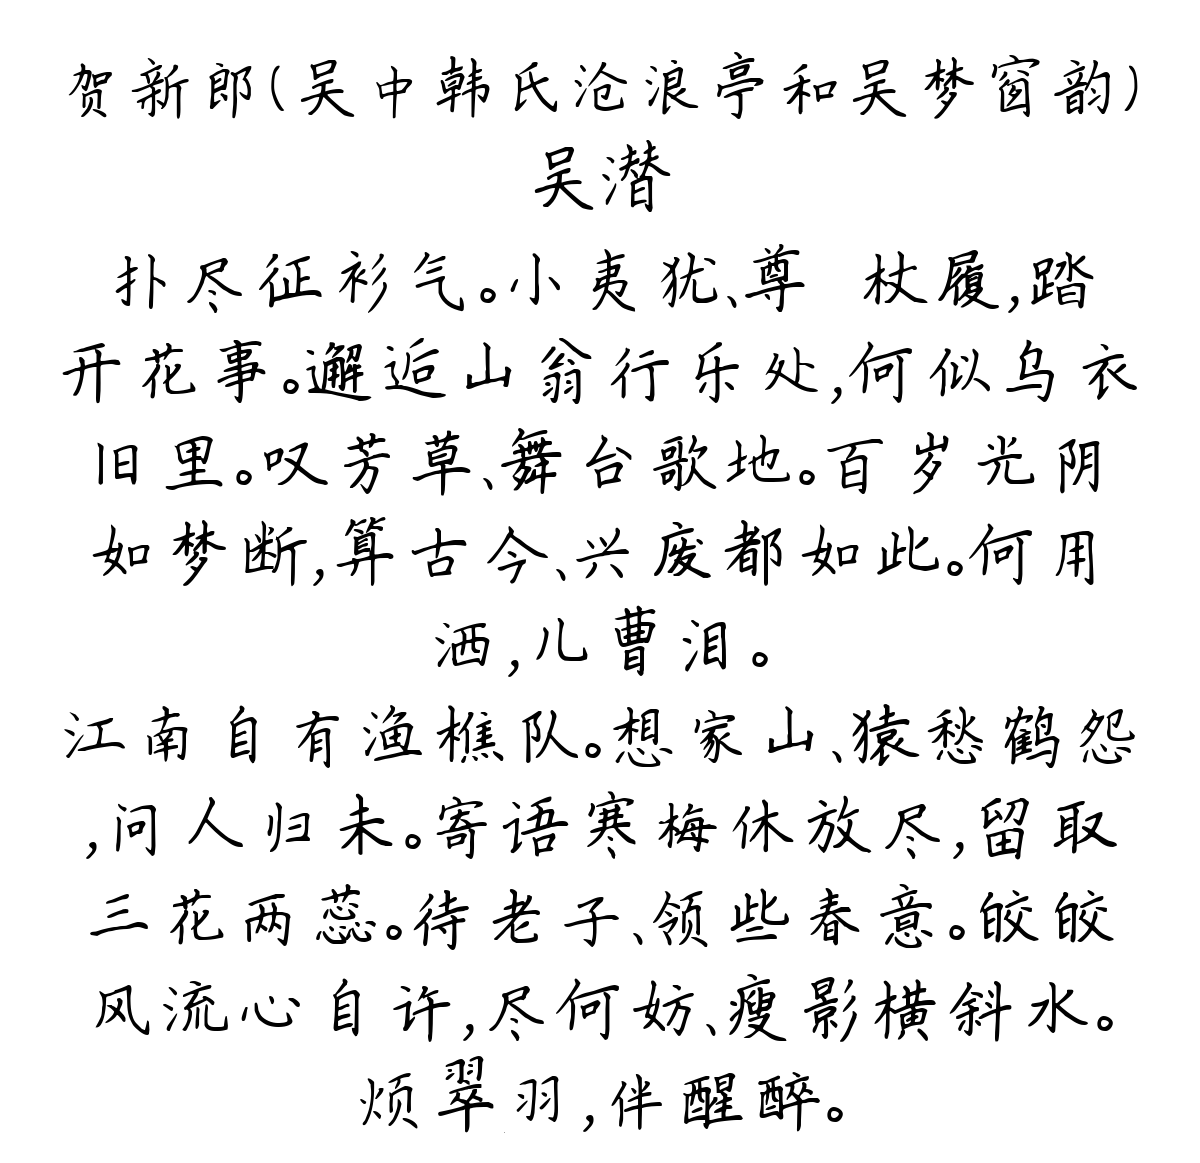 贺新郎(吴中韩氏沧浪亭和吴梦窗韵)
吴潜
扑尽征衫气。小夷犹、尊 杖履,踏
开花事。邂逅山翁行乐处,何似乌衣
旧里。叹芳草、舞台歌地。百岁光阴
如梦断,算古今、兴废都如此。何用
洒,儿曹泪。
江南自有渔樵队。想家山、猿愁鹤怨
,问人归未。寄语寒梅休放尽,留取
三花两蕊。待老子、领些春意。皎皎
风流心自许,尽何妨、瘦影横斜水。
烦翠羽,伴醒醉。